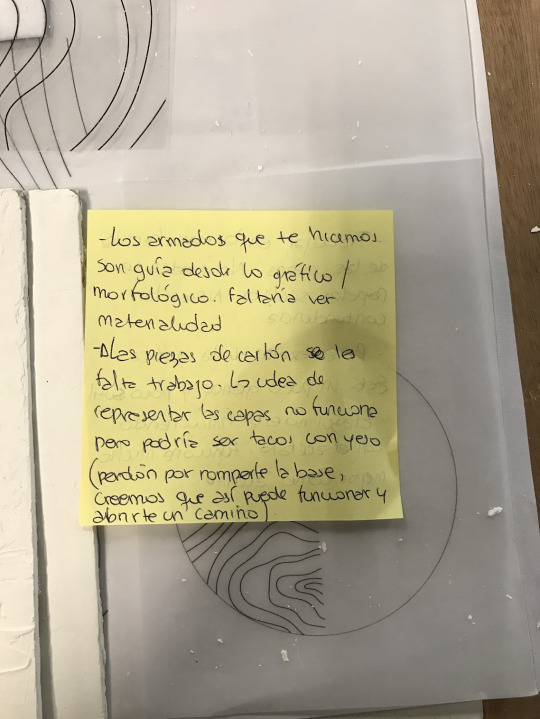 -Los armados que te hicimos
son guía desde lo gráfico /
morfológico. faltaría ver
materialidad
-A las piezas de cartón se les
falta trabajo. La idea de
representar las capas no funciona
pero podría ser tacos con yeso
(perdón por romperte la base,
creemos que así puede funcionar y
abrirte un camino)